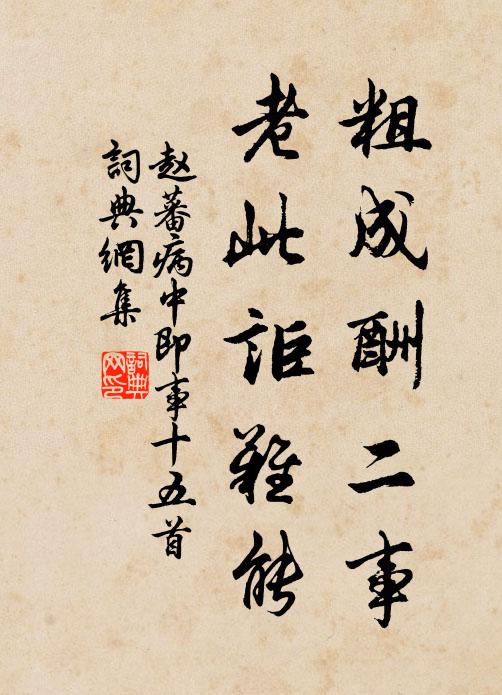 粗成酬二事
老此詎難能
赵蕃病中即事十五首
詞典網集
詞典网印